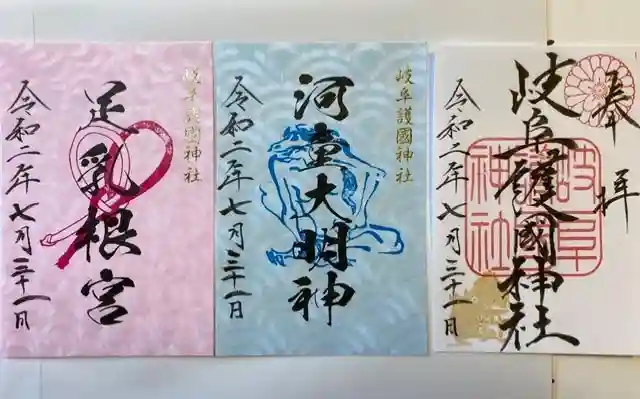 岐阜護國神社
足乳根宮
令和二年七月三十一日
岐阜護國神社
河童大明神
令和二年七月三十一日
奉拝
岐阜護國神社
岐阜護國神社
令和二年七月三十一日